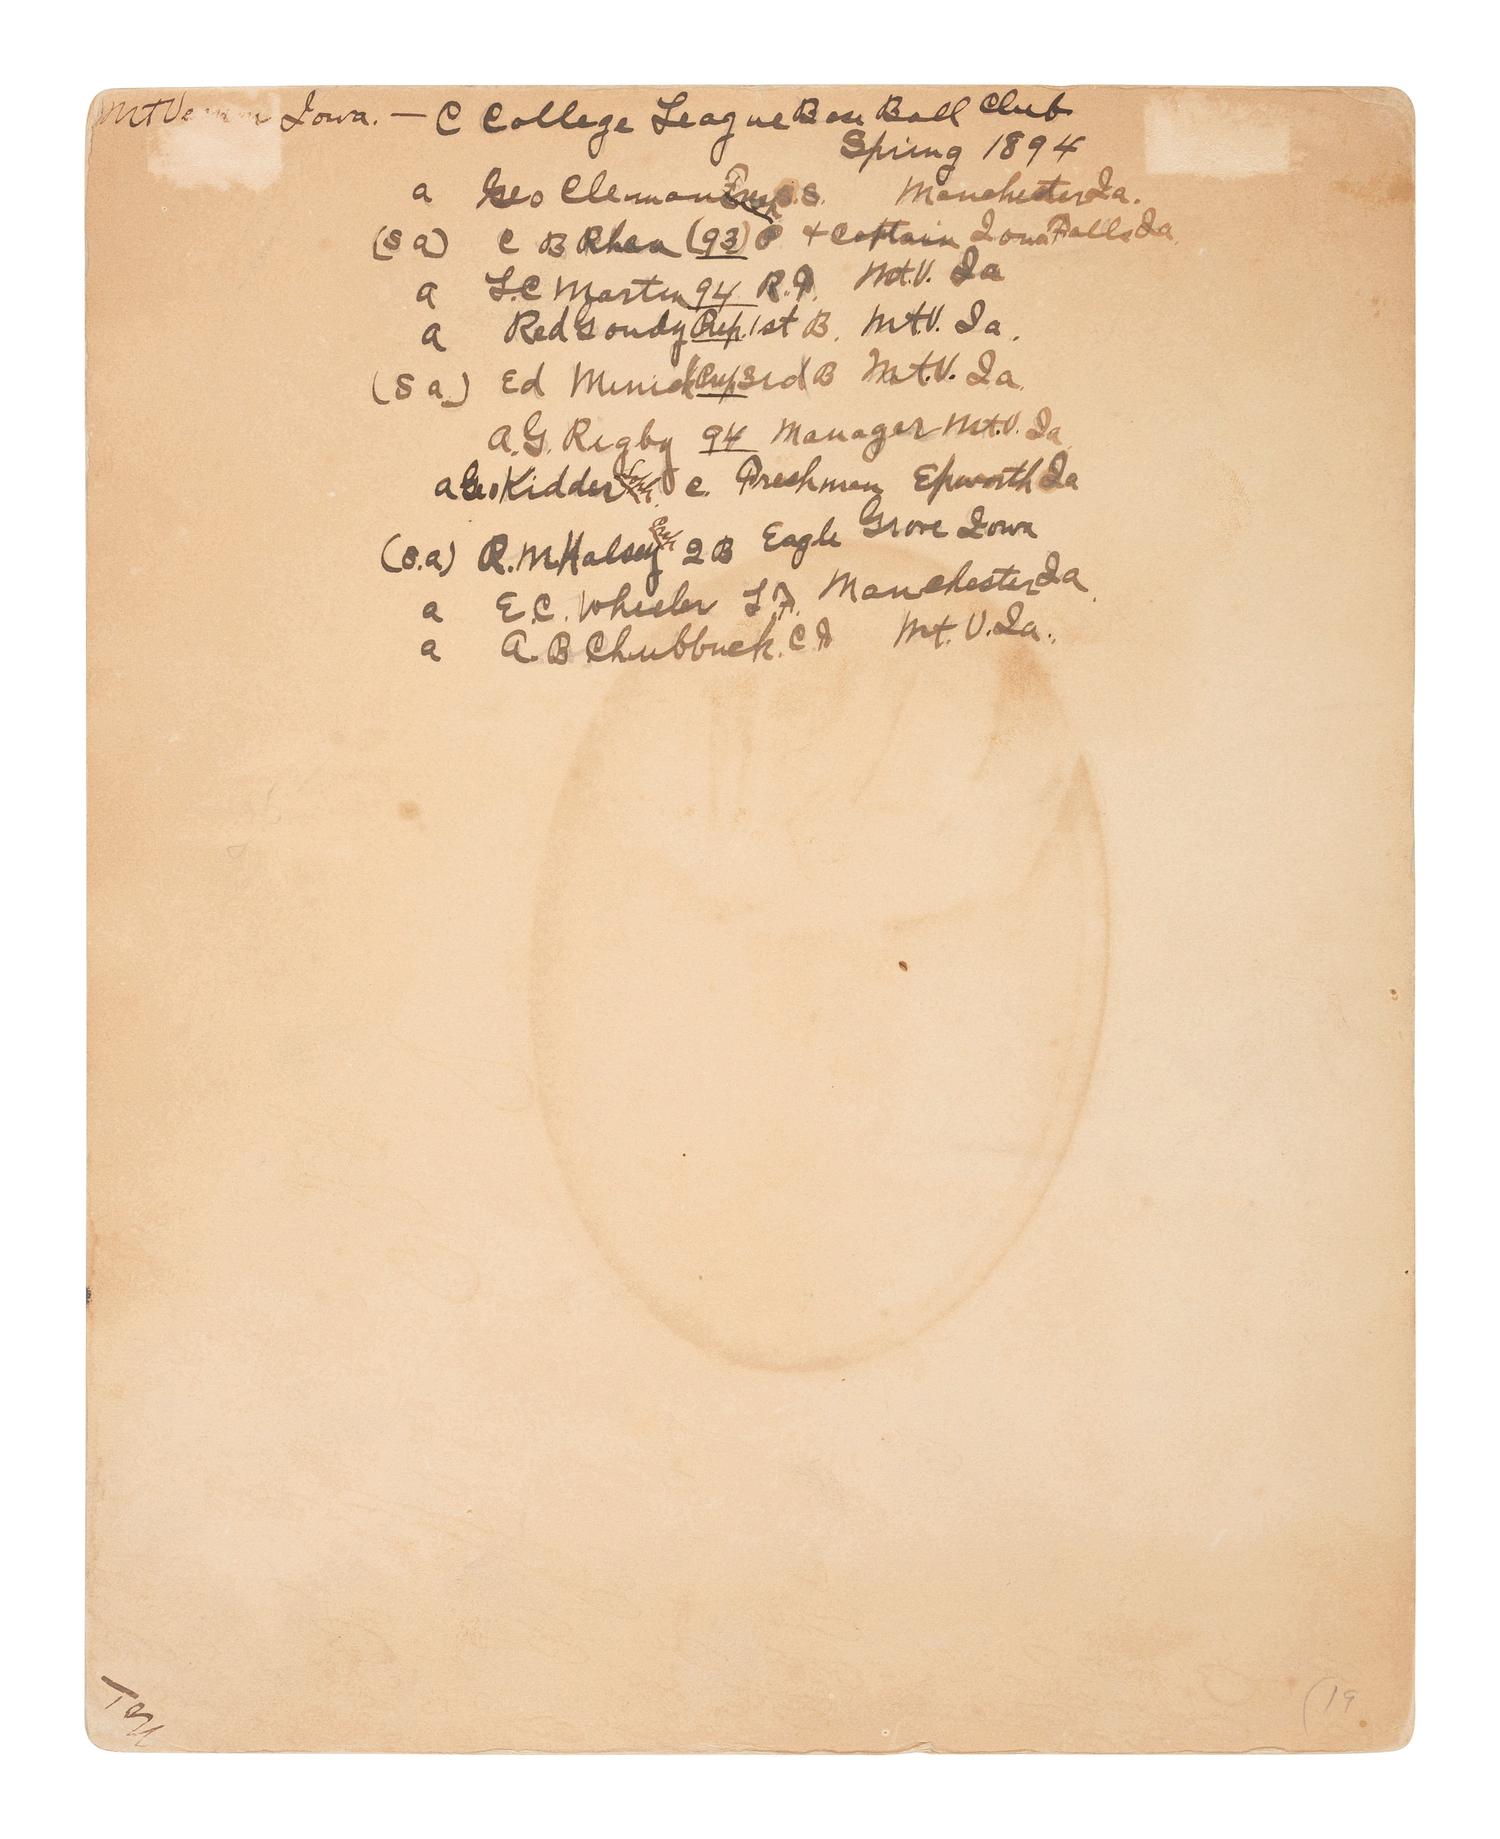 Mt Vernon Iowa. — C College League Base Ball Club
Spring 1894
a Geo Cleman Prep S.S. Manchester Ia.
(S a) C B Rhea (93) P. + Captain Iowa Falls Ia
a L.C Martin 94 R.F. Mt.V. Ia
a Red Goudy Prep. 1st B. Mt V. Ia.
(S a.) Ed Minick Prep 3rd B Mt.V. Ia.
A.G. Rigby 94 Manager Mt.V. Ia.
a Geo Kidder c. Freshman Epworth Ia
(S.a) R.M. Halsey 2 B Eagle Grove Iowa
a E.C. Wheeler L F. Manchester Ia.
a A. B Chubbuck. C F Mt. V. Ia.
(19